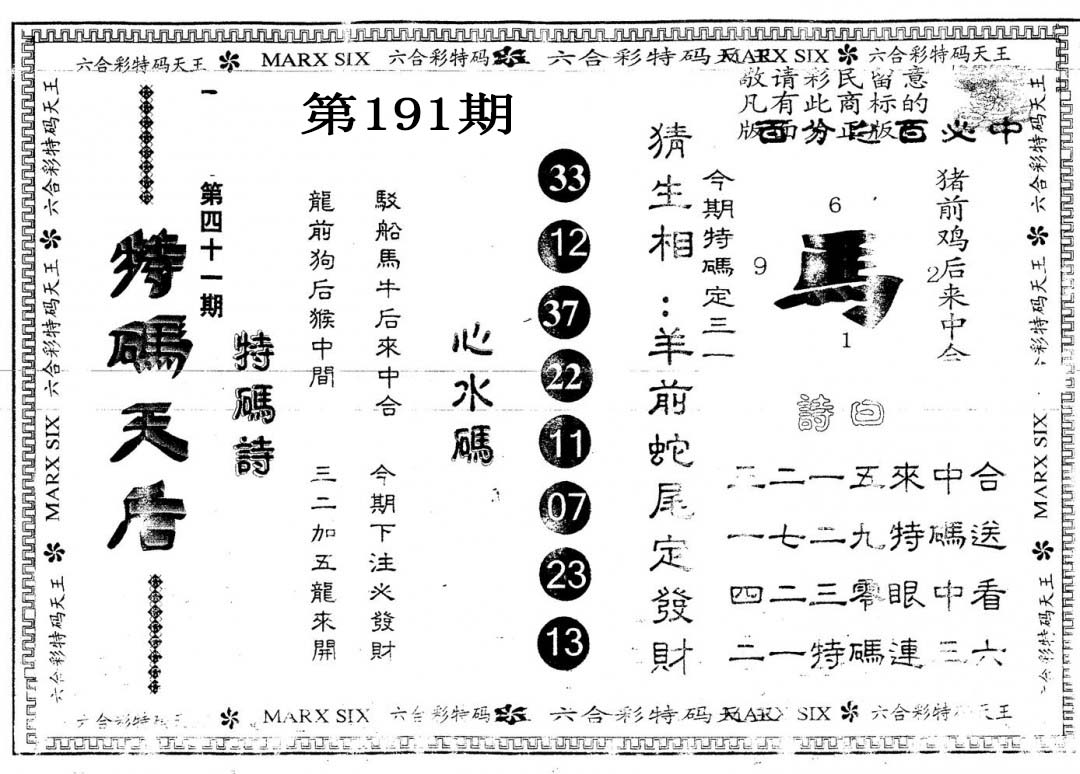 六合彩特码天王 MARX SIX 六合彩特码天王 六合彩特码天王 MARX SIX 六合彩特码天王
敬请彩民留意
凡有此商标的
版面为正版
百分之百必中
第191期
第四十一期
特碼天后
特碼詩
龍前狗后猴中間
三二加五龍來開
駁船馬牛后來中合
今期下注必發財
心水碼
33
12
37
22
11
07
23
13
猜生相：羊前蛇尾定發財
今期特碼定三一
6
9
馬
2
1
猪前鸡后来中合
詩曰
三二一五來中合
一七二九特碼送
四二三零眼中看
二一特碼連三六
六合彩特码天王 MARX SIX 六合彩特码天王 六合彩特码天王
六合彩特码天王 六合彩特码天王 MARX SIX 六合彩特码天王
六合彩特码天王 MARX SIX 六合彩特码 六合彩特码天王 MARX SIX 六合彩特码天王